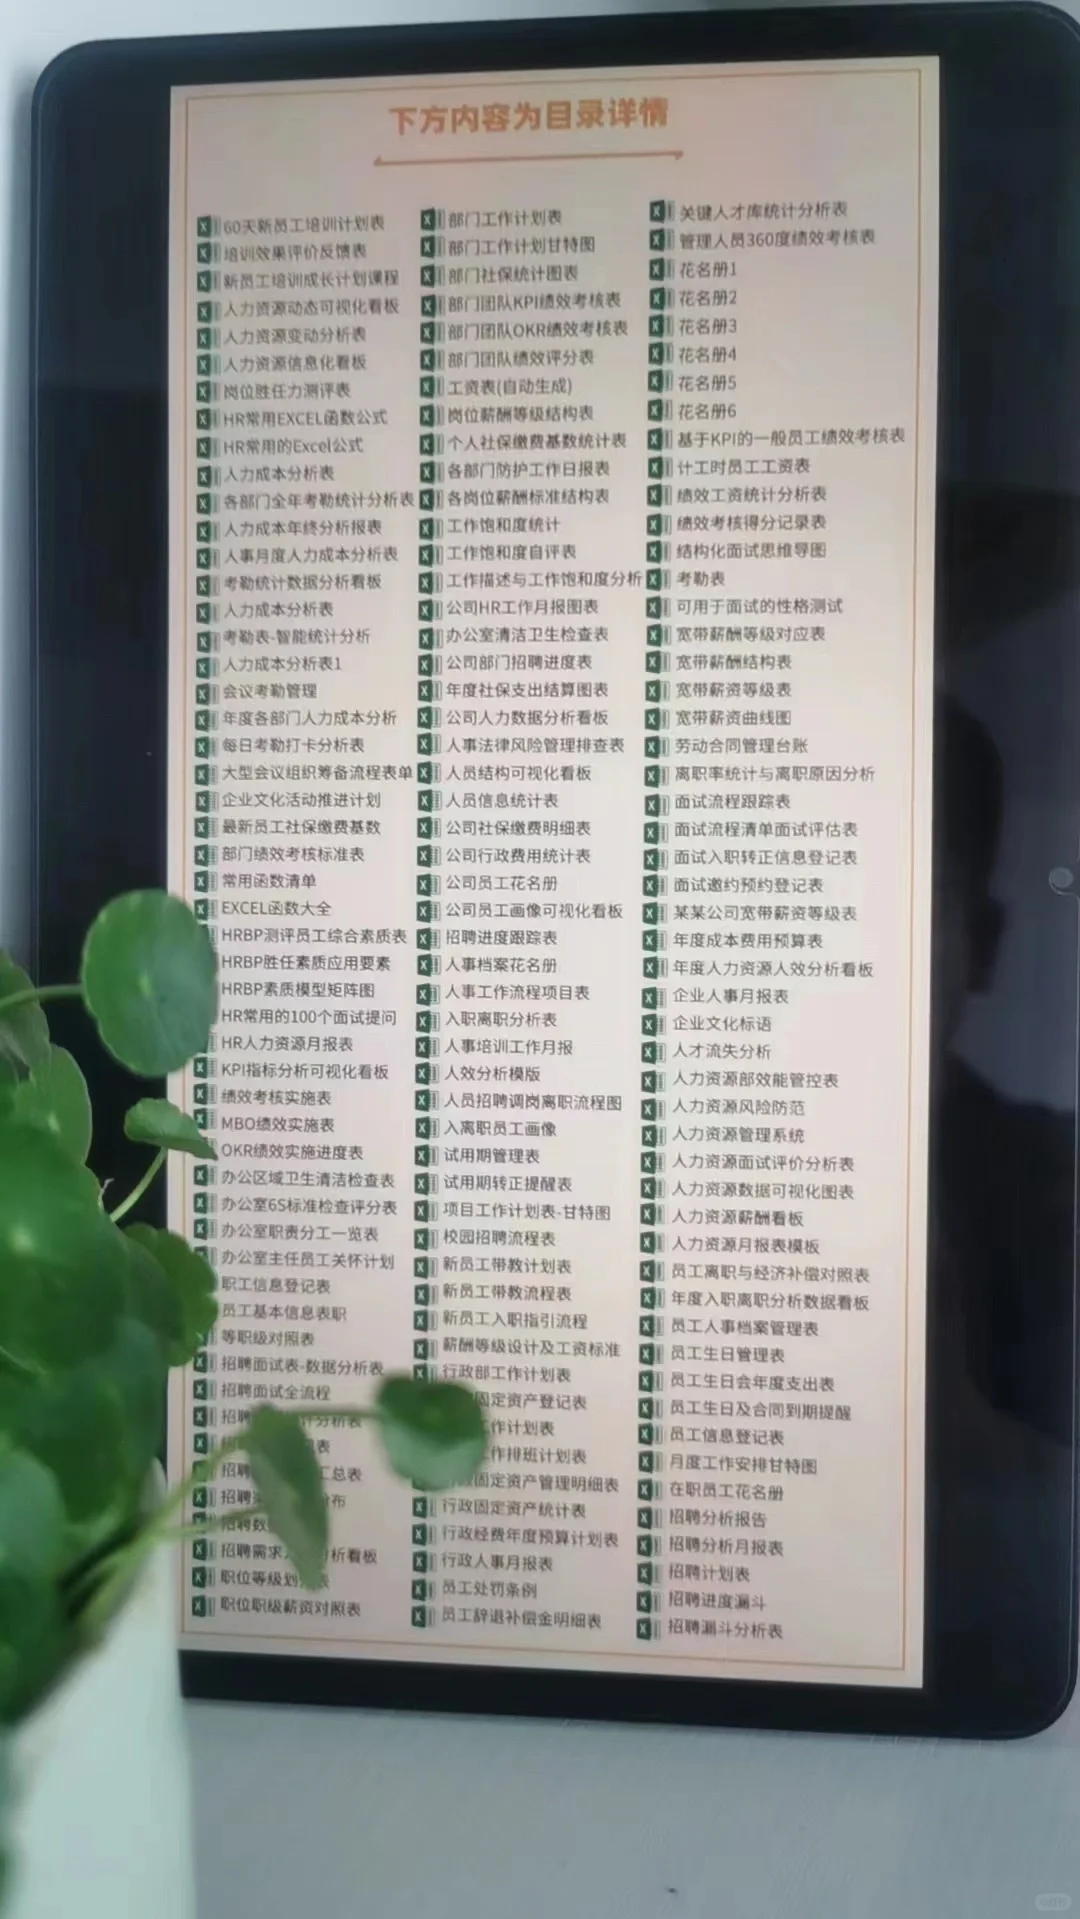 下方内容为目录详情
60天新员工培训计划表
培训效果评价反馈表
新员工培训成长计划课程
人力资源动态可视化看板
人力资源变动分析表
人力资源信息化看板
岗位胜任力测评表
HR常用EXCEL函数公式
HR常用的Excel公式
人力成本分析表
各部门全年考勤统计分析表
人力成本年终分析报表
人事月度人力成本分析表
考勤统计数据分析看板
人力成本分析表
考勤表-智能统计分析
人力成本分析表1
会议考勤管理
年度各部门人力成本分析
每日考勤打卡分析表
大型会议组织筹备流程表单
企业文化活动推进计划
最新员工社保缴费基数
部门绩效考核标准表
常用函数清单
EXCEL函数大全
HRBP测评员工综合素质表
HRBP胜任素质应用要素
HRBP素质模型矩阵图
HR常用的100个面试提问
HR人力资源月报表
KPI指标分析可视化看板
绩效考核实施表
MBO绩效实施表
OKR绩效实施进度表
办公区域卫生清洁检查表
办公室6S标准检查评分表
办公室职责分工一览表
办公室主任员工关怀计划
职工信息登记表
员工基本信息表职
等职级对照表
招聘面试表-数据分析表
招聘面试全流程
招聘 计分析表
表
招聘 汇总表
招聘 布
招聘数
招聘需求 析看板
职位等级划 表
职位职级薪资对照表
部门工作计划表
部门工作计划甘特图
部门社保统计图表
部门团队KPI绩效考核表
部门团队OKR绩效考核表
部门团队绩效评分表
工资表(自动生成)
岗位薪酬等级结构表
个人社保缴费基数统计表
各部门防护工作日报表
各岗位薪酬标准结构表
工作饱和度统计
工作饱和度自评表
工作描述与工作饱和度分析
公司HR工作月报图表
办公室清洁卫生检查表
公司部门招聘进度表
年度社保支出结算图表
公司人力数据分析看板
人事法律风险管理排查表
人员结构可视化看板
人员信息统计表
公司社保缴费明细表
公司行政费用统计表
公司员工花名册
公司员工画像可视化看板
招聘进度跟踪表
人事档案花名册
人事工作流程项目表
入职离职分析表
人事培训工作月报
人效分析模版
人员招聘调岗离职流程图
入离职员工画像
试用期管理表
试用期转正提醒表
项目工作计划表-甘特图
校园招聘流程表
新员工带教计划表
新员工带教流程表
新员工入职指引流程
薪酬等级设计及工资标准
行政部工作计划表
固定资产登记表
工作计划表
工作排班计划表
固定资产管理明细表
行政固定资产统计表
行政经费年度预算计划表
行政人事月报表
员工处罚条例
员工辞退补偿金明细表
关键人才库统计分析表
管理人员360度绩效考核表
花名册1
花名册2
花名册3
花名册4
花名册5
花名册6
基于KPI的一般员工绩效考核表
计工时员工工资表
绩效工资统计分析表
绩效考核得分记录表
结构化面试思维导图
考勤表
可用于面试的性格测试
宽带薪酬等级对应表
宽带薪酬结构表
宽带薪资等级表
宽带薪资曲线图
劳动合同管理台账
离职率统计与离职原因分析
面试流程跟踪表
面试流程清单面试评估表
面试入职转正信息登记表
面试邀约预约登记表
某某公司宽带薪资等级表
年度成本费用预算表
年度人力资源人效分析看板
企业人事月报表
企业文化标语
人才流失分析
人力资源部效能管控表
人力资源风险防范
人力资源管理系统
人力资源面试评价分析表
人力资源数据可视化图表
人力资源薪酬看板
人力资源月报表模板
员工离职与经济补偿对照表
年度入职离职分析数据看板
员工人事档案管理表
员工生日管理表
员工生日会年度支出表
员工生日及合同到期提醒
员工信息登记表
月度工作安排甘特图
在职员工花名册
招聘分析报告
招聘分析月报表
招聘计划表
招聘进度漏斗
招聘漏斗分析表